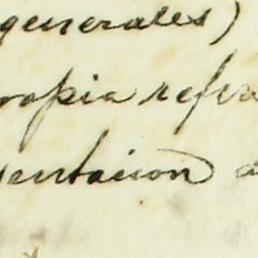 generales)
ropia refer
sentacion a